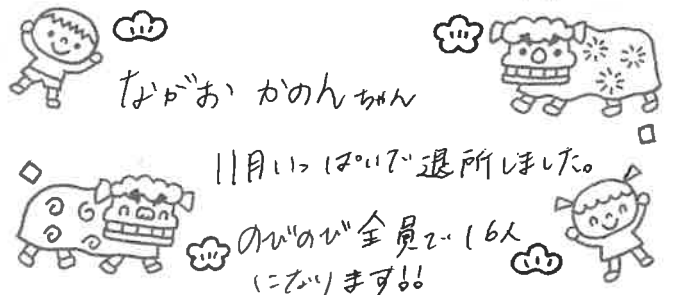 ながお かのんちゃん
11月いっぱいで退所しました。
のびのび全員で16人
になります!!